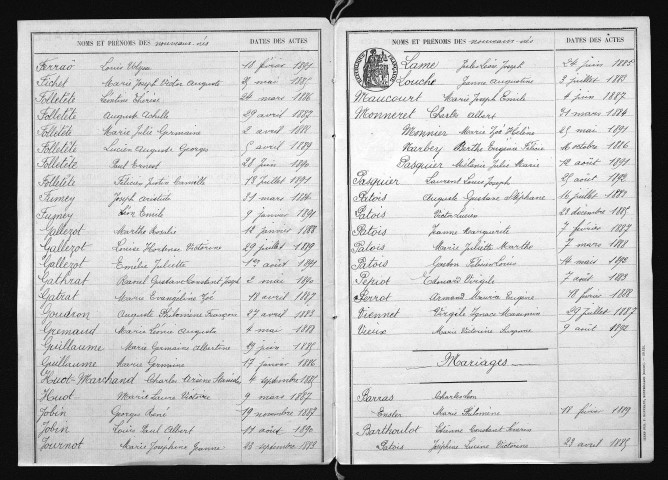 NOMS ET PRÉNOMS DES nouveaux-nés DATES DES ACTES
Louis 18 février
Fichet Marie Joseph Victor Auguste mai
Folletête Léontine Thérèse 24 mars 1886
Folletête Auguste Achille 29 avril 1887
Folletête Marie Julie Germaine 2 avril 1888
Folletête Lucien Auguste Georges 5 avril 1889
Folletête Paul Ernest 28 juin 1890
Folletête Justin Camille 18 juillet 1891
Fumey Joseph Aristide 31 mars 1884
Fumey Emile 9 janvier 1891
Gallezot Marthe Rosalie 14 janvier 1888
Gallezot Louise Hortense Victorine 29 juillet 1889
Gallezot Emilie Juliette 1er août 1891
Gathrat Raoul Gustave Constant Joseph 2 mai 1890
Gatrat Marie Evangéline Zoé 18 avril 1887
Goudron Auguste Philomène François 27 avril 1883
Gremaud Marie Léonie Augusta 4 mai 1888
Guillaume Marie Germaine Albertine 29 juin 1885
Guillaume Marie Germaine 17 janvier 1886
Huot-Marchand Charles Arsène Stanislas 4 septembre 1885
Huot Marie Laure Victoire 9 mars 1887
Jobin Georges René 19 novembre 1887
Jobin Louis Paul Albert 11 août 1890
Journot Marie Joséphine Jeanne 23 septembre 1883
NOMS ET PRÉNOMS DES nouveaux-nés DATES DES ACTES
Lame Jules Léon Joseph 24 juin 1885
Louche Jeanne Augustine 3 juillet 1883
Maucourt Marie Joseph Emile 4 juin 1887
Monneret Charles Albert 21 mars 1884
Monnier Marie Zoé Hélène 25 mai 1891
Narbey Berthe Eugénie 16 octobre 1886
Pasquier Mélanie Jules Marie 12 août 1891
Pasquier Laurent Louis Joseph 25 août 1892
Patois Auguste Gustave Stéphane 16 juillet
Patois Victor Lucien 21 décembre 1885
Patois Jeanne Marguerite 7 février 1887
Patois Marie Juliette Marthe 7 mars 1888
Patois Gaston Louis 14 mai 1892
Pepiot Edouard Virgile 7 août 1883
Perrot Armand Maurice Eugène 18 février 1888
Viennet Virgile Ignace Maximin 29 juillet 1887
Vieux Marie Victorine Suzanne 9 août 1892
Mariages
Barras Charles Léon
Ensler Marie Philomène 18 février 1889
Bartholot Etienne Constant
Patois Joséphine Lucine Victorine 23 avril 1885